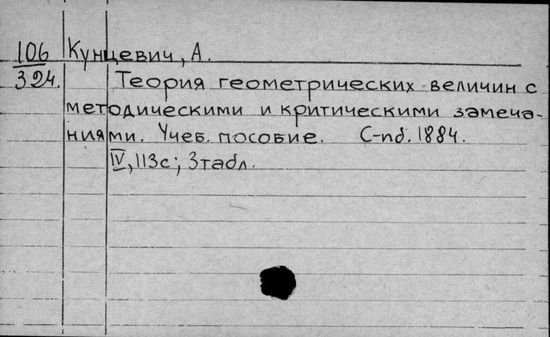 106 Кунцевич, А.
324. Теория геометрических величин с
методическими и критическими замеча-
ниями. Учеб. пособие. С-пб. 1884.
IV, 113с; 3табл.